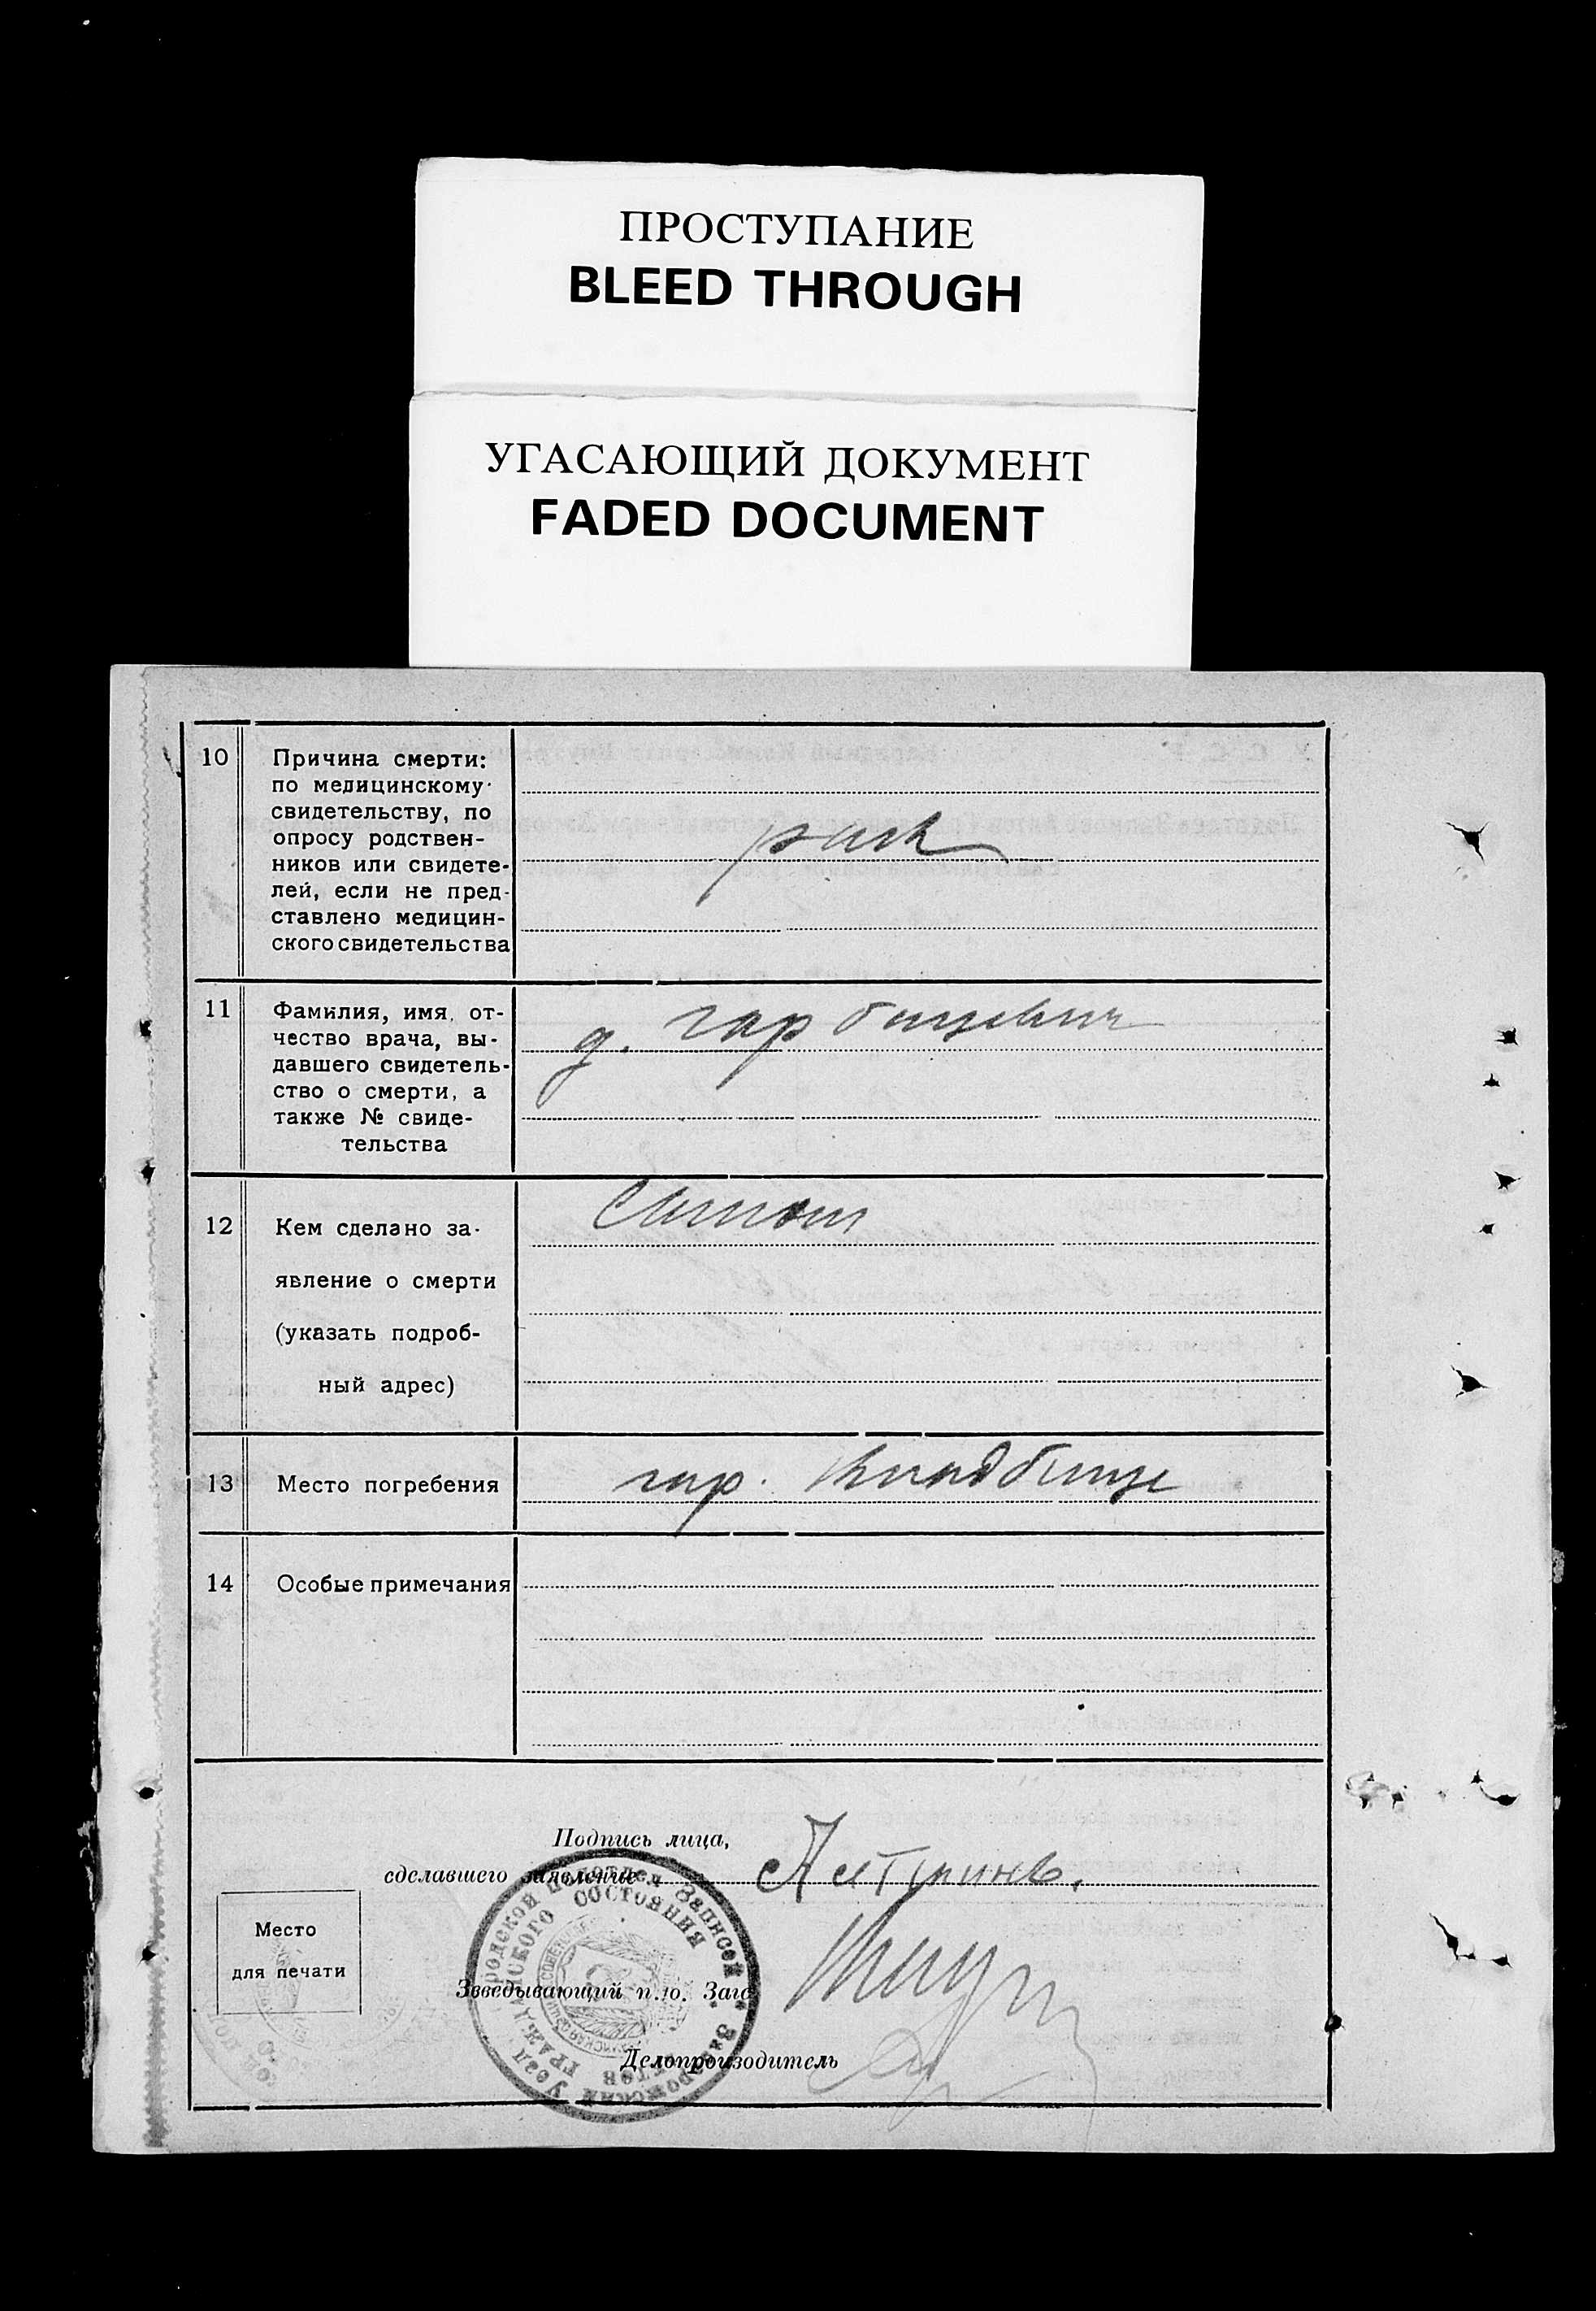 ПРОСТУПАНИЕ
BLEED THROUGH
УГАСАЮЩИЙ ДОКУМЕНТ
FADED DOCUMENT
10
Причина смерти:
по медицинскому
свидетельству, по
опросу родствен-
ников или свидете-
лей, если не пред-
ставлено медицин-
ского свидетельства
рак
11
Фамилия, имя, от-
чество врача, вы-
давшего свидетель-
ство о смерти, а
также № свиде-
тельства
д. Гарбицевич
12
Кем сделано за-
явление о смерти
(указать подроб-
ный адрес)
13
Место погребения
гор. Кладбище
14
Особые примечания
Подпись лица,
сделавшего заявление
Место
для печати
Звведывающий п.ю. Загс
Делопроизводитель
подотдел Записей
ГРАЖДАНСКОГО СОСТОЯНИЯ